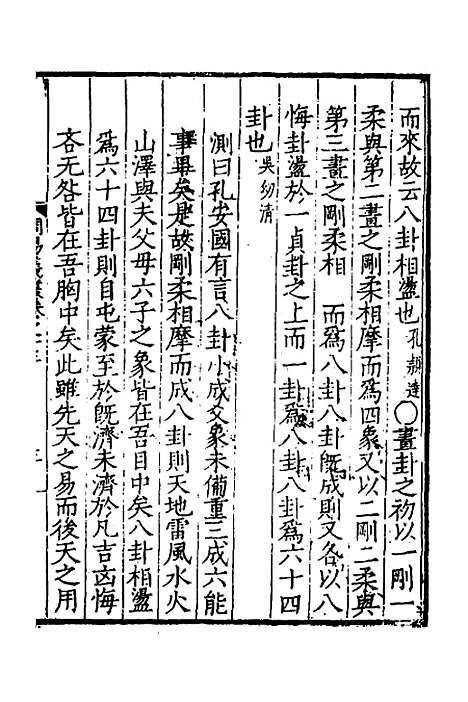 而來故云八卦相盪也孔穎達○畫卦之初以一剛一
柔與第二畫之剛柔相摩而為四象又以二剛二柔與
第三畫之剛柔相　而為八卦八卦旣成則又各以八
悔卦盪於一貞卦之上而一卦為八卦八卦為六十四
卦也吳幼清
測曰孔安國有言八卦小成爻象未備重三成六能
事畢矣是故剛柔相摩而成八卦則天地雷風水火
山澤與夫父母六子之象皆在吾目中矣八卦相盪
爲六十四卦則自屯蒙至於旣濟未濟於凡吉凶悔
吝无咎皆在吾胸中矣此雖先天之易而後天之用